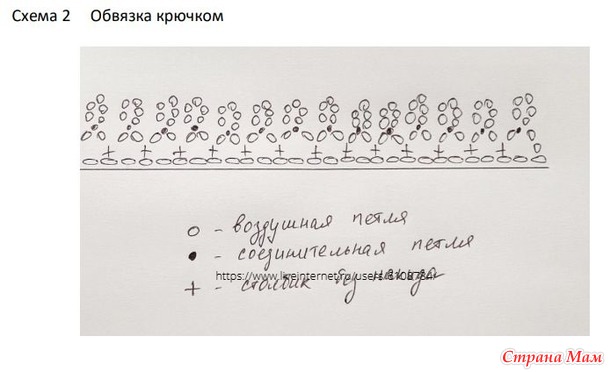 Схема 2 Обвязка крючком
o - воздушная петля
• - соединительная петля
https://www.liveinternet.ru/users/
+ - столбик без накида
Страна Мам